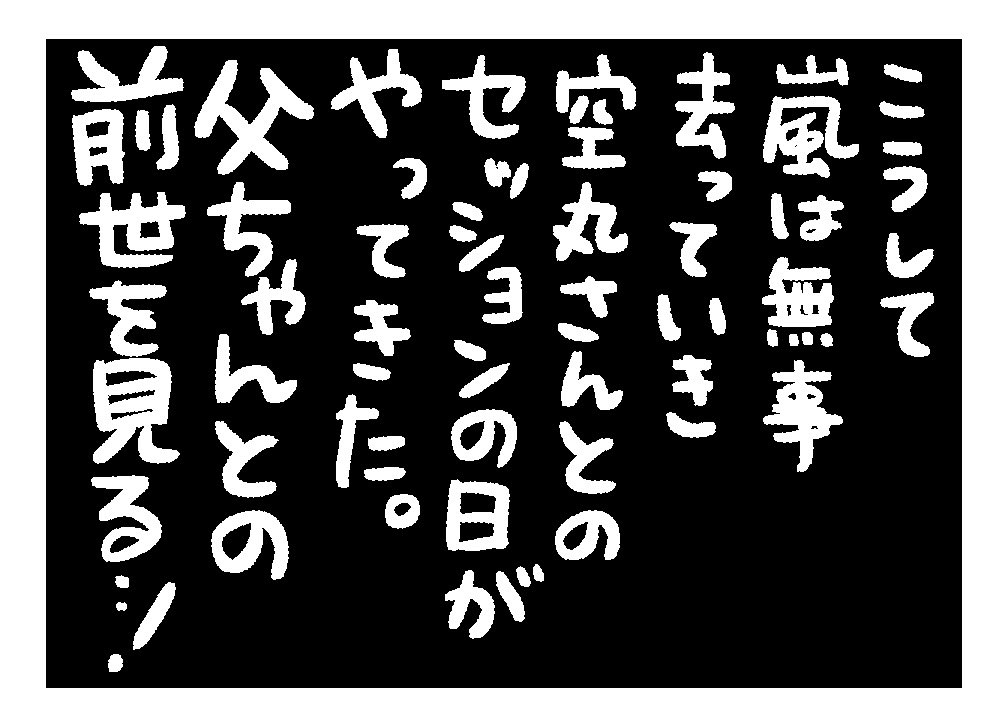 こうして
嵐は無事
去っていき
空丸さんとの
セッションの日が
やってきた。
父ちゃんとの
前世を見る…!